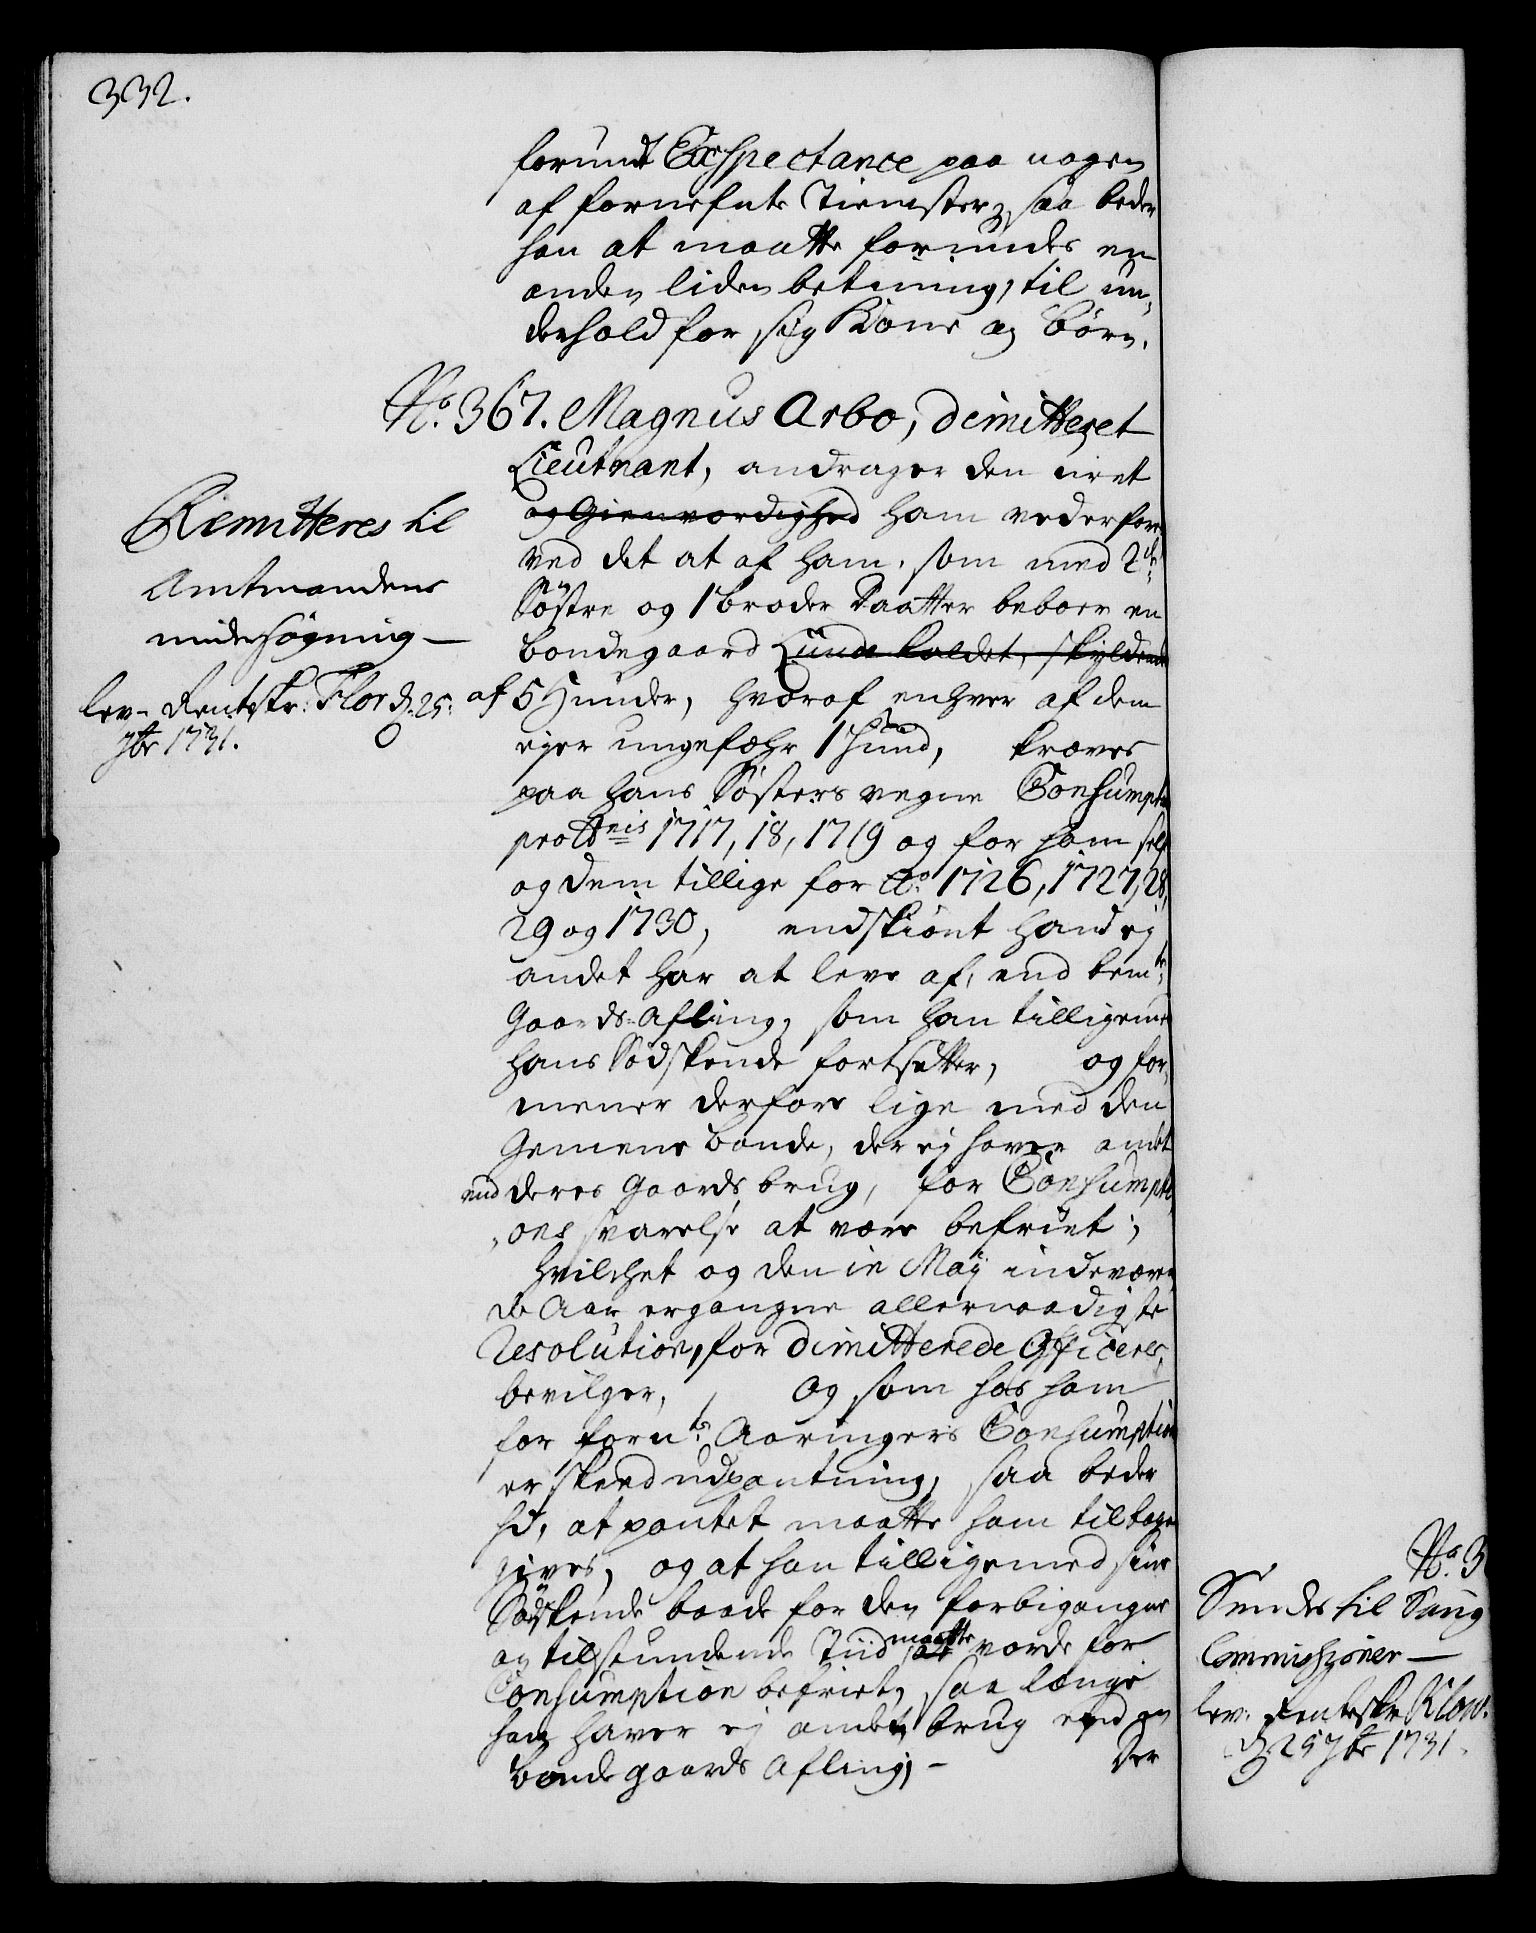 332.
forundt Exspectance paa nogen
af fornefnte Tienister, saa beder
han at maatte forundes en
anden liden betiening, til un-
derhold for sig Kone og Børn.
No. 367. Magnus Arbo, dimitteret
Lieutnant, andrager den uret
og Gienvordighed ham vederfares
ved det at af ham, som med 2de
Søstre og 1 broder Daatter beboer en
bondegaard Lunde kaldet, skyldende
af 5 Hunder, hvoraf enhver af dem
ejer ungefæhr 1 Hund, kræves
paa hans Søsters vegne Consumption
pro Annis 1717, 18, 1719 og for ham self
og dem tillige for Ao. 1726, 1727, 28,
29 og 1730, endskiønt hand ej
andet har at leve af, end bemte
Gaards Afling, som han tilligemed
hans Sødskende fortsætter, og for-
mener derfore lige med den
Gemene bonde, der ej haver andet
end deres Gaards brug, for Consumpti-
ons svarelse at være befriet;
Hvilchet og den in Maij indeværen-
de Aar ergangne allernaadigste
Resolution, for dimitterede Officerer,
bevilger, Og som hos ham
for fornte Aaringers Consumption
er skeed udpantning, saa beder
hd, at pantet maatte ham tilbage
gives, og at han tilligemed sine
Sødskende baade for den forbigangne
og tilstundende Tiid maatte vorde for
Consumption befriet, saa længe
han haver ej andet brug end en
bondegaards Afling, -
Der
Remitteres til
Amtmandens
undersøgning —
lev. Rentskr: Flor d. 25:
7br 1731.
No. 3
Sendes til Saug
Commissionen —
lev. Renteskr Klow.
d. 25 7br 1731.